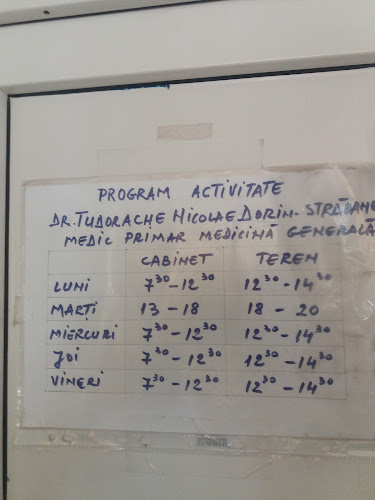 PROGRAM ACTIVITATE
DR. TUDORACHE NICOLAE DORIN - STRĂOANE
MEDIC PRIMAR MEDICINĂ GENERALĂ
CABINET TEREN
LUNI 7³⁰-12³⁰ 12³⁰-14³⁰
MARȚI 13-18 18-20
MIERCURI 7³⁰-12³⁰ 12³⁰-14³⁰
JOI 7³⁰-12³⁰ 12³⁰-14³⁰
VINERI 7³⁰-12³⁰ 12³⁰-14³⁰